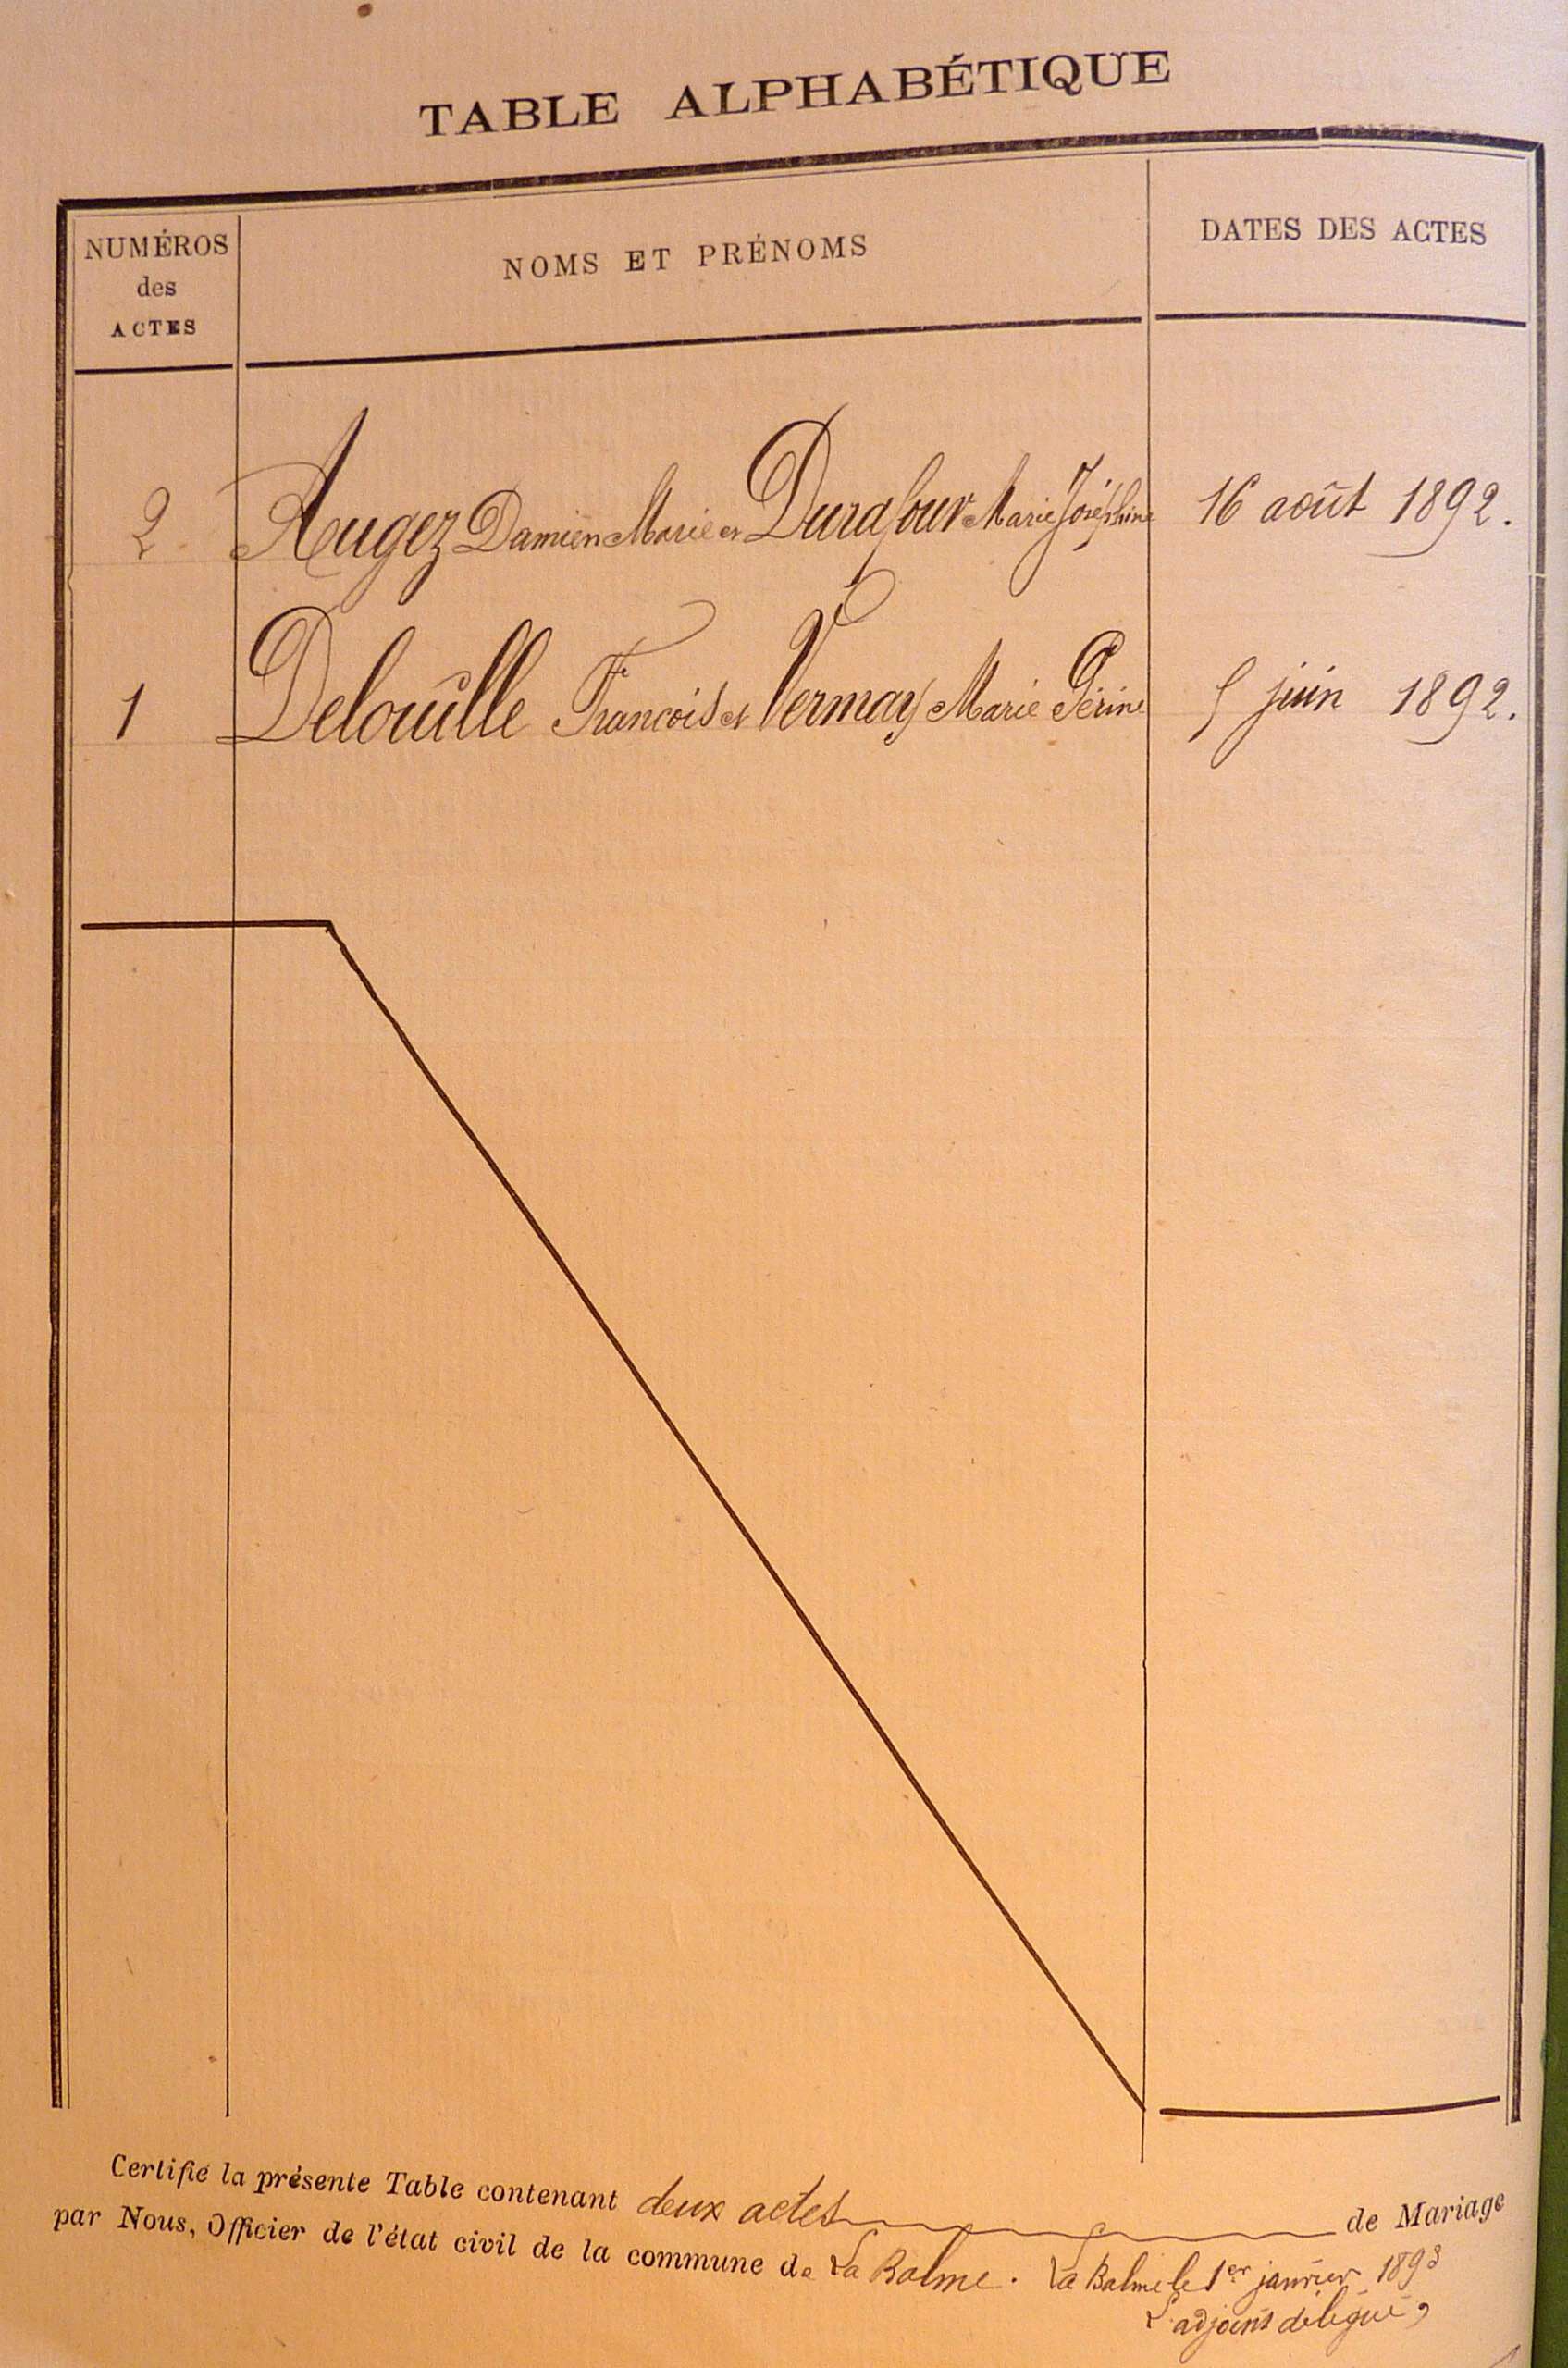 TABLE ALPHABÉTIQUE
NUMÉROS
des
ACTES
NOMS ET PRÉNOMS
DATES DES ACTES
2 Augez Damien Marie et Durafour Marie Joséphine 16 août 1892.
1 Delouille Francois et Vermay Marie Périne 5 juin 1892.
Certifié la présente Table contenant deux actes de Mariage
par Nous, Officier de l'état civil de la commune de La Balme. La Balme le 1er janvier 1893
L'adjoint délégué,